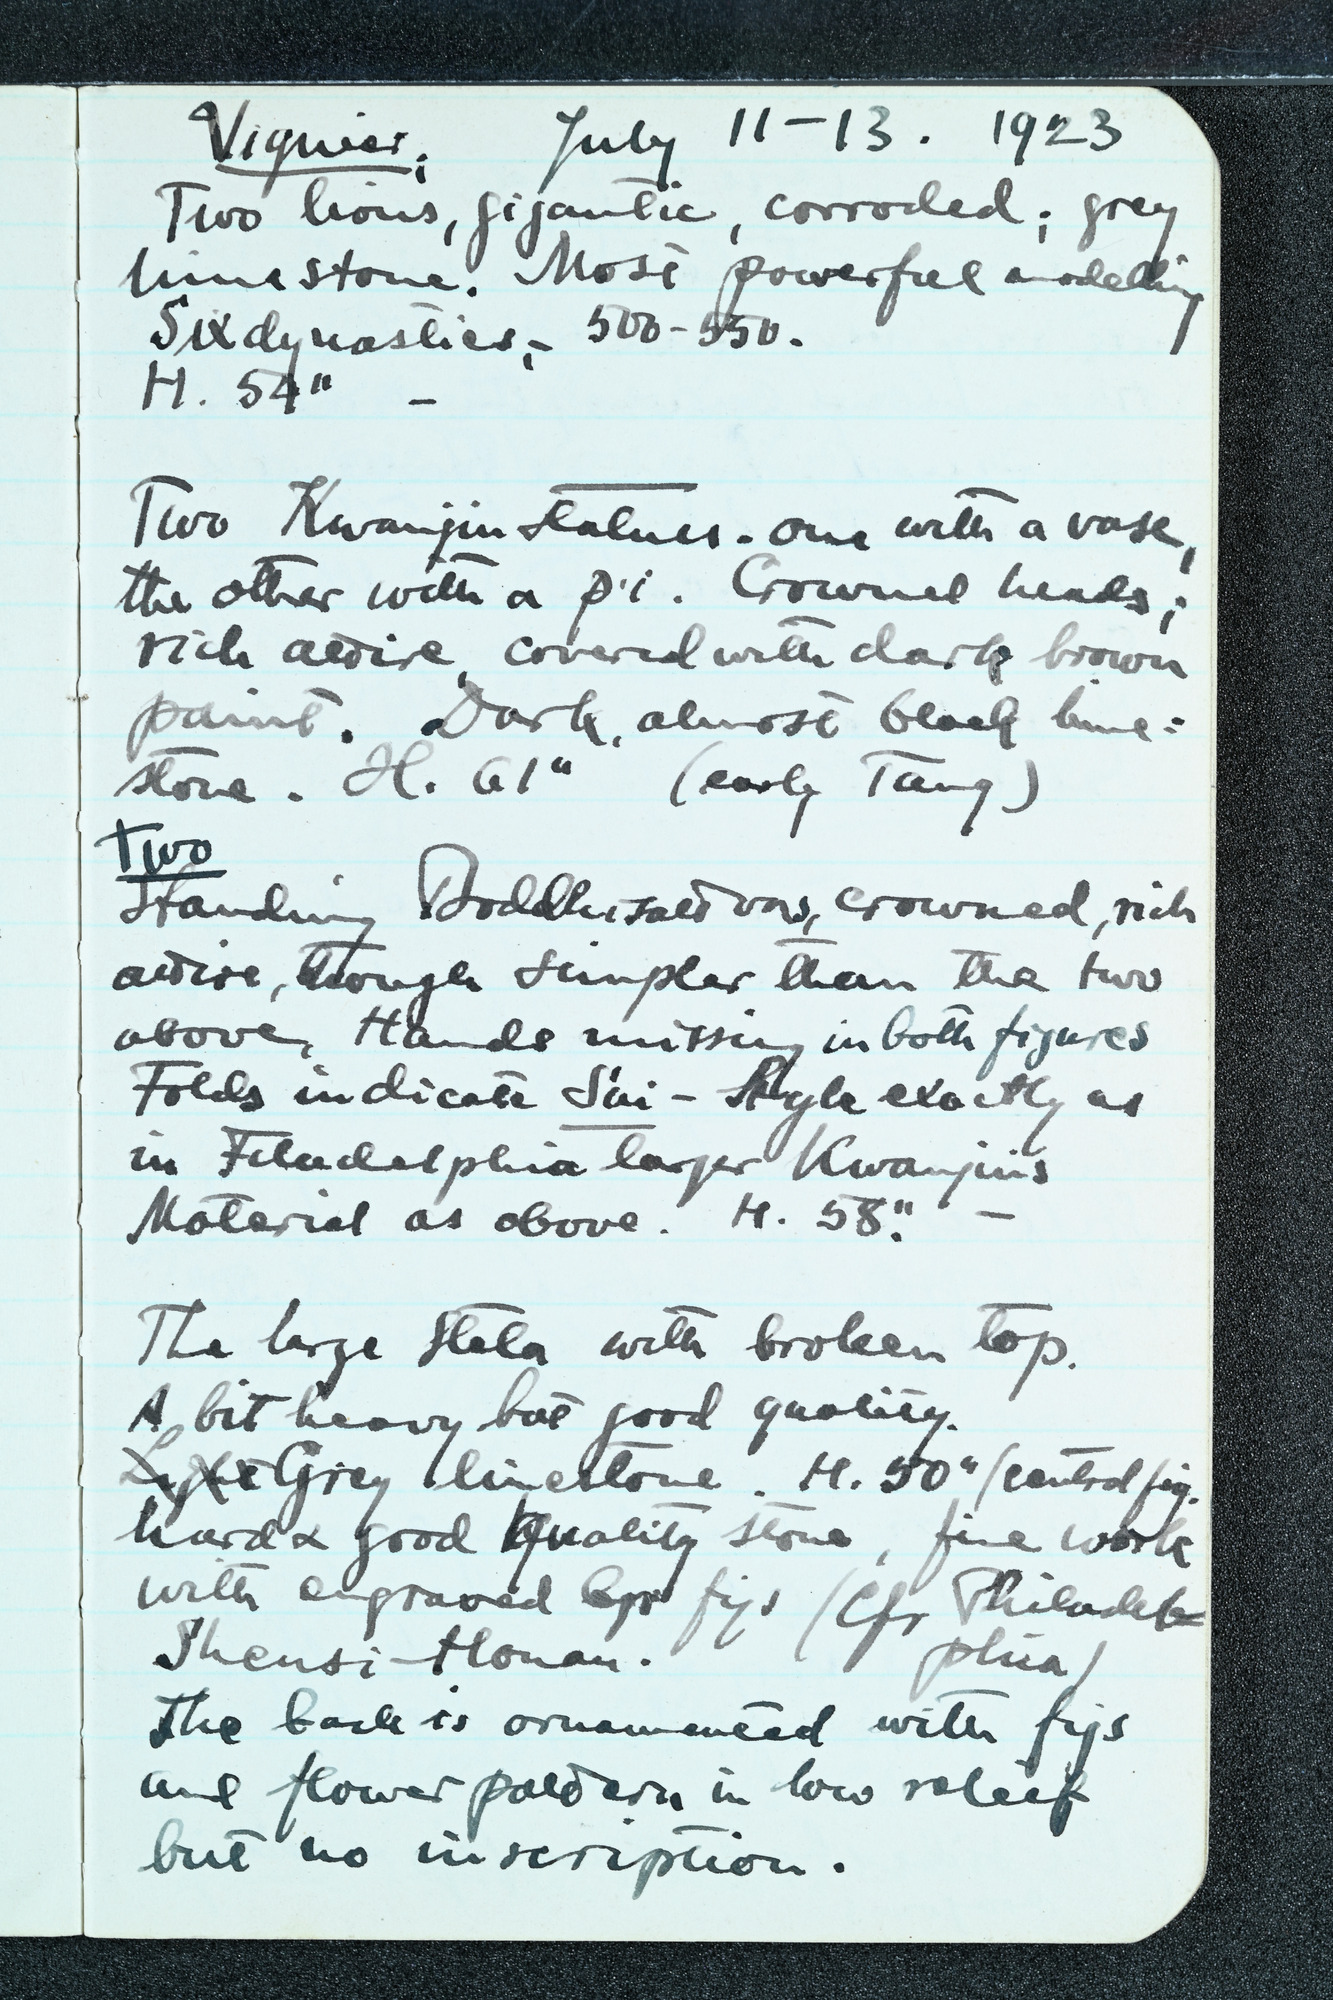 Vignier; July 11-13. 1923
Two lions, gigantic, corroded; grey
limestone. Most powerful modelling
Six dynasties;- 500-550.
H. 54" -
Two Kwanjin statues. one with a vase,
the other with a p'i. Crowned heads;
rich attire, covered with dark brown
paint. Dark, almost black lime=
stone. H. 61" (early Tang)
Two
Standing Boddhisattvas, crowned, rich
attire, though simpler than the two
above, Hands missing in both figures
Folds indicate Sui - Style exactly as
in Filadelphia larger Kwanjins
Material as above. H. 58". -
The large Stela with broken top.
A bit heavy but good quality.
Grey limestone. H. 50" (central fig.
hard & good quality stone, fine work
with engraved figs (Cfr Philadel=
Shensi-Honan. phia)
The back is ornamented with figs
and flower pattern in low releef
but no inscription.